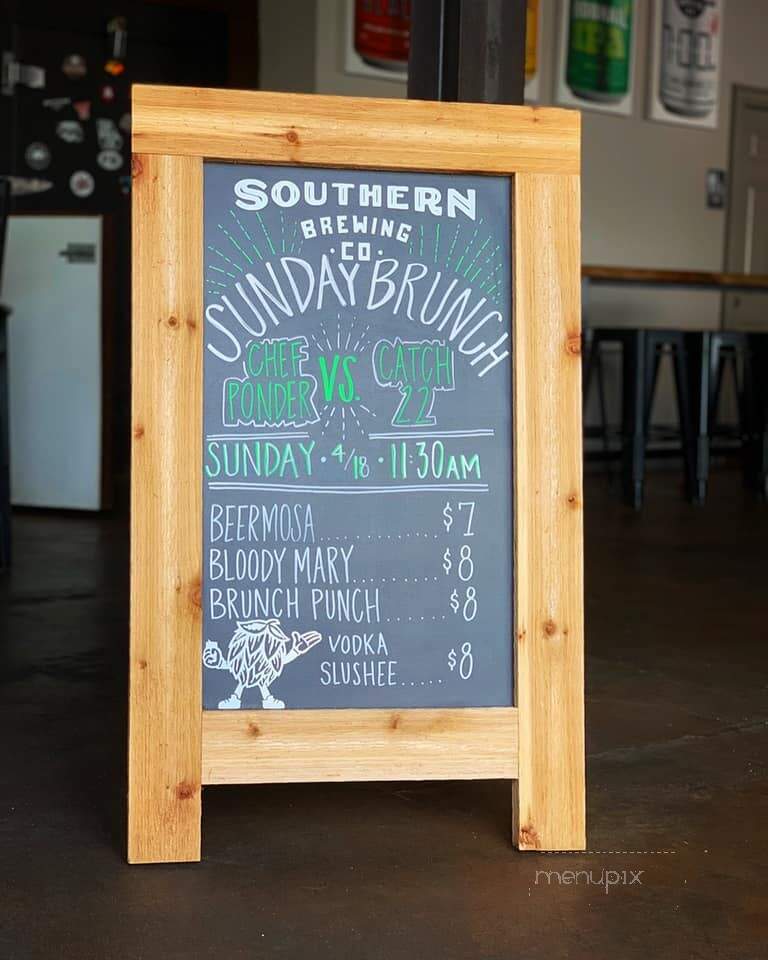 SOUTHERN
BREWING
·CO·
SUNDAY BRUNCH
CHEF PONDER VS. CATCH 22
SUNDAY · 4/18 · 11:30AM
BEERMOSA............$7
BLOODY MARY.........$8
BRUNCH PUNCH......$8
VODKA
SLUSHEE.....$8
IPA
menupix